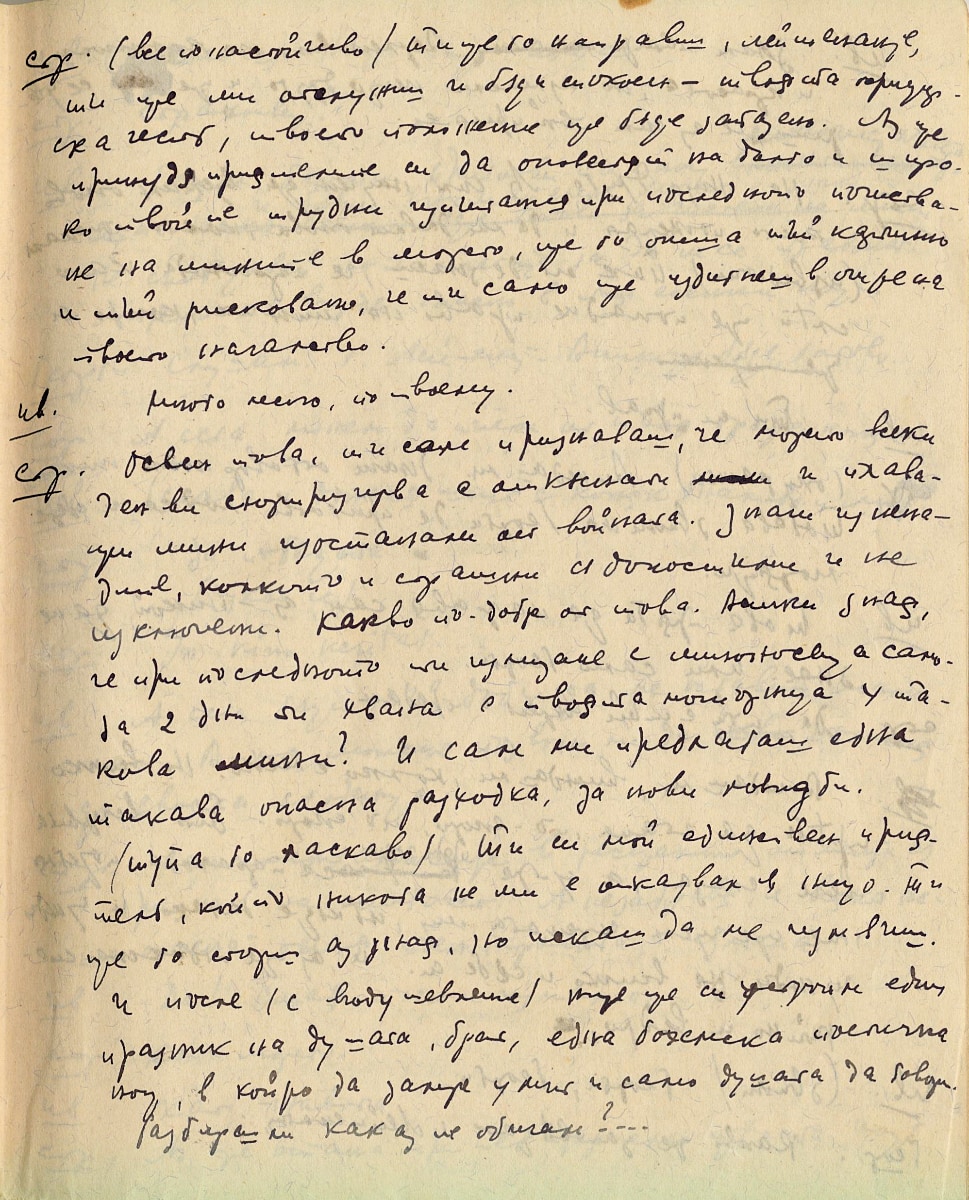 стр. (все по настойчиво) ти ще го направиш, лейтенанте,
ти ще ми отслужиш и бъди спокоен — твоята
ска честь, твоето положение ще бъде запазено. Аз ще
принудя приятелите си да оповестят на дълго и широ-
ко твойте трудни изпитания при последното почиства-
не на мините в морето, ще го опиша тъй картинно
и тъй рисковано, че ти само ще израстнеш в очите на
твоето началство.
ив. Много лесно, по твоему.
стр. Освен това, ти сам признаваш, че морето всеки
ден ви сюрпризирва с откъснати и плава-
щи мини изостанали от войната. Знам изнена-
дите, колкото и страшни са допостими и не
изключени. Какво по-добре от това. Нима зная,
че при последното ти излизане с миноносеца само
за 2 дни ти хвана с твоята команда 4 та-
кова мини? И сам ми предлагаш една
такава опасна разходка, за нови ловидби.
(тупа го ласкаво) Ти си мой единствен прия-
тель, който никога не ми е отказвал в нищо. Ти
ще го сториш аз зная, но искаш да ме измъчиш.
И после (с въодушевление) ние ще си устроим един
празник на душата, брат, една бохемска поетична
нощ, в която да замре умът и само душата да говори.
Разбираш ли как аз те обичам?....